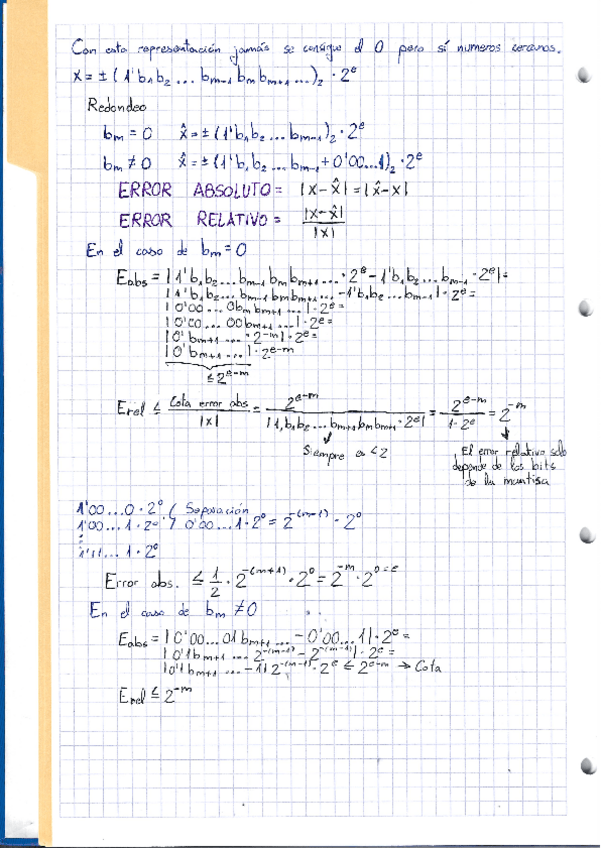 Con esta representación jamás se consigue el 0 pero sí números cercanos.
x = ± (1'b₁b₂ ... bₘ₋₁ bₘ bₘ₊₁ ...)₂ · 2ᵉ
Redondeo
bₘ = 0 x̂ = ± (1'b₁b₂ ... bₘ₋₁)₂ · 2ᵉ
bₘ ≠ 0 x̂ = ± (1'b₁b₂ ... bₘ₋₁ + 0'00...1)₂ · 2ᵉ
ERROR ABSOLUTO = |x - x̂| = |x̂ - x|
ERROR RELATIVO = |x - x̂| / |x|
En el caso de bₘ = 0
Eabs = |1'b₁b₂...bₘ₋₁ bₘ bₘ₊₁ ... · 2ᵉ - 1'b₁b₂...bₘ₋₁ · 2ᵉ| =
|1'b₁b₂...bₘ₋₁ bₘ bₘ₊₁ ... - 1'b₁b₂...bₘ₋₁| · 2ᵉ =
|0'00...0bₘ bₘ₊₁ ...| · 2ᵉ =
|0'00...00bₘ₊₁ ...| · 2ᵉ =
|0'bₘ₊₁ ... · 2⁻ᵐ| · 2ᵉ =
|0'bₘ₊₁ ...| · 2ᵉ⁻ᵐ
≤ 2ᵉ⁻ᵐ
Erel ≤ Cota error abs / |x| = 2ᵉ⁻ᵐ / |1,b₁b₂...bₘ₋₁ bₘ bₘ₊₁ · 2ᵉ| = 2ᵉ⁻ᵐ / 1·2ᵉ = 2⁻ᵐ
Siempre es < 2
El error relativo solo
depende de los bits
de la mantisa
1'00...0 · 2⁰ / Separación
1'00...1 · 2⁰ / 0'00...1 · 2⁰ = 2⁻⁽ᵐ⁻¹⁾ · 2⁰
⋮
1'11...1 · 2⁰
Error abs. ≤ 1/2 · 2⁻⁽ᵐ⁺¹⁾ · 2⁰ = 2⁻ᵐ · 2⁰⁼ᵉ
En el caso de bₘ ≠ 0
Eabs = |0'00...01bₘ₊₁ ... - 0'00...1| · 2ᵉ =
|0'1bₘ₊₁ ... 2⁻⁽ᵐ⁻¹⁾ - 2⁻⁽ᵐ⁻¹⁾| · 2ᵉ =
|0'1bₘ₊₁ ... - 1| 2⁻⁽ᵐ⁻¹⁾ · 2ᵉ ≤ 2ᵉ⁻ᵐ → Cota
Erel ≤ 2⁻ᵐ